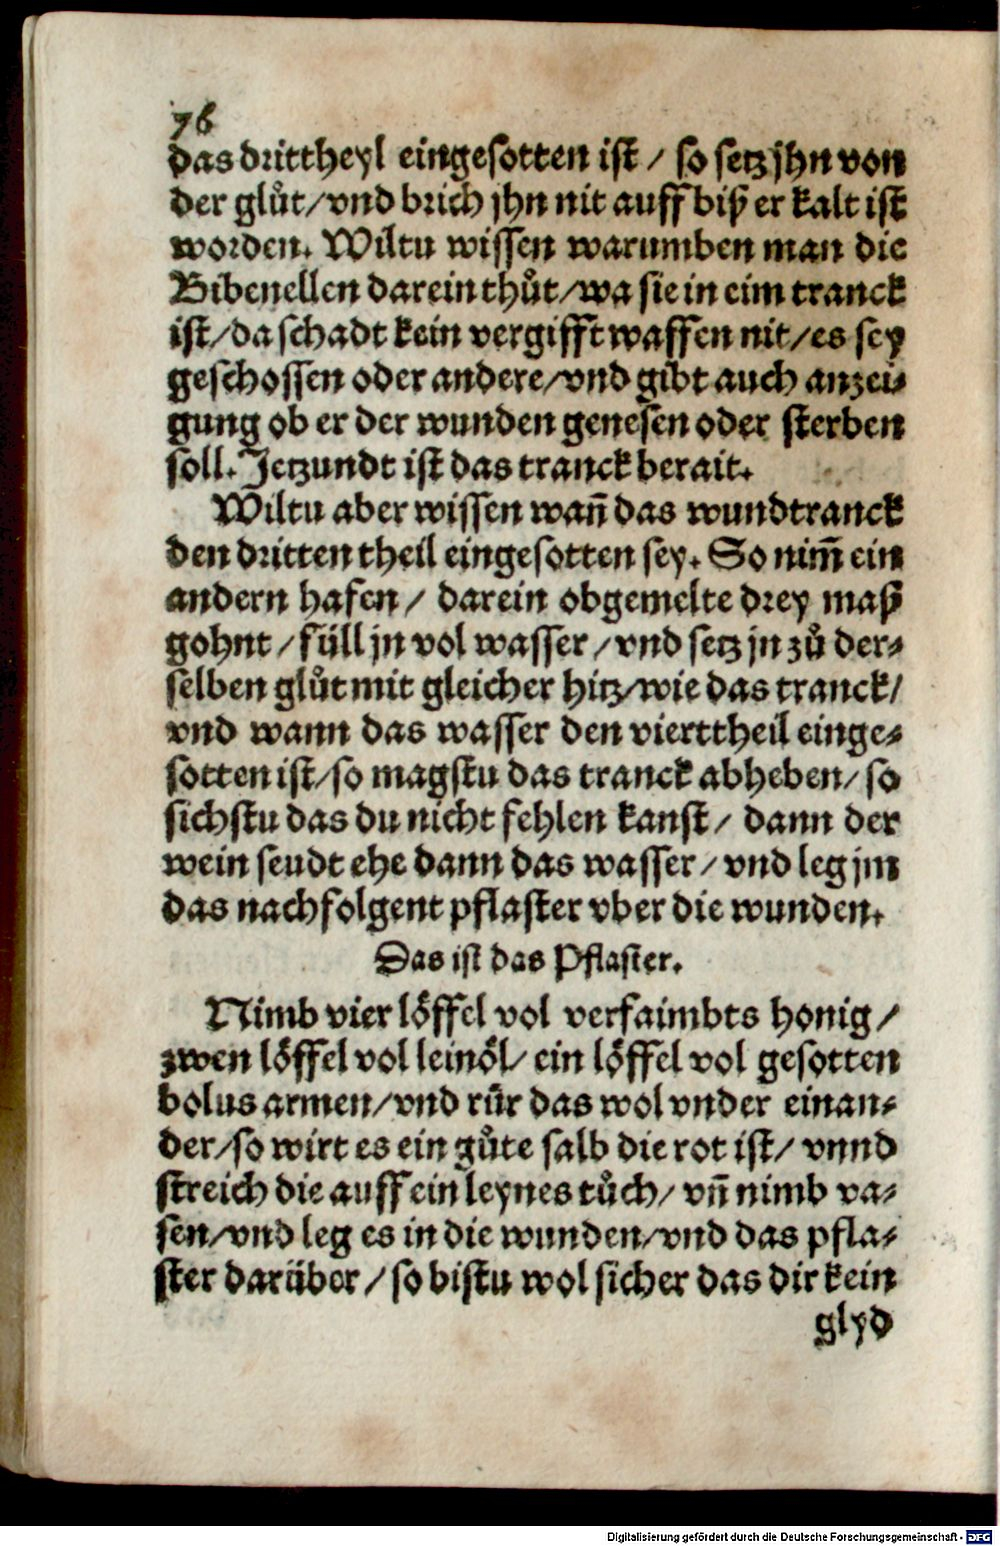 76
das drittheyl eingesotten ist / so setz jhn von
der glůt/vnd brich jhn nit auff biß er kalt ist
worden. Wiltu wissen warumben man die
Bibenellen darein thůt/wa sie in eim tranck
ist/da schadt kein vergifft waffen nit/es sey
geschossen oder andere/vnd gibt auch anzei⸗
gung ob er der wunden genesen oder sterben
soll. Jetzundt ist das tranck berait.
Wiltu aber wissen wañ das wundtranck
den dritten theil eingesotten sey. So nim̃ ein
andern hafen / darein obgemelte drey maß
gohnt / füll jn vol wasser / vnd setz jn zů der⸗
selben glůt mit gleicher hitz/wie das tranck/
vnd wann das wasser den vierttheil einge⸗
sotten ist/so magstu das tranck abheben/ so
sichstu das du nicht fehlen kanst / dann der
wein seudt ehe dann das wasser / vnd leg jm
das nachfolgent pflaster vber die wunden.
Das ist das Pflaster.
Nimb vier löffel vol verfaimbts honig /
zwen löffel vol leinöl/ ein löffel vol gesotten
bolus armen/vnd rür das wol vnder einan⸗
der/so wirt es ein gůte salb die rot ist/ vnnd
streich die auff ein leynes tůch/ vñ nimb va⸗
sen/vnd leg es in die wunden/vnd das pfla⸗
ster darüber / so bistu wol sicher das dir kein
glyd
Digitalisierung gefördert durch die Deutsche Forschungsgemeinschaft - DFG